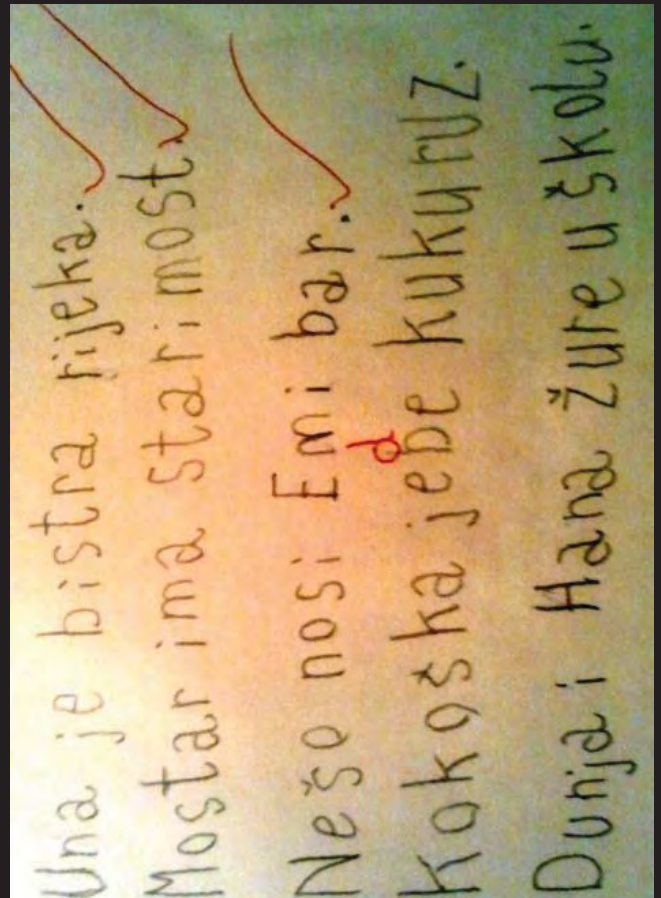 Una je bistra rijeka.
Mostar ima stari most.
Nešo nosi Emi bar.
d
Kokoška jebe kukuruz.
Dunja i Hana žure u školu.